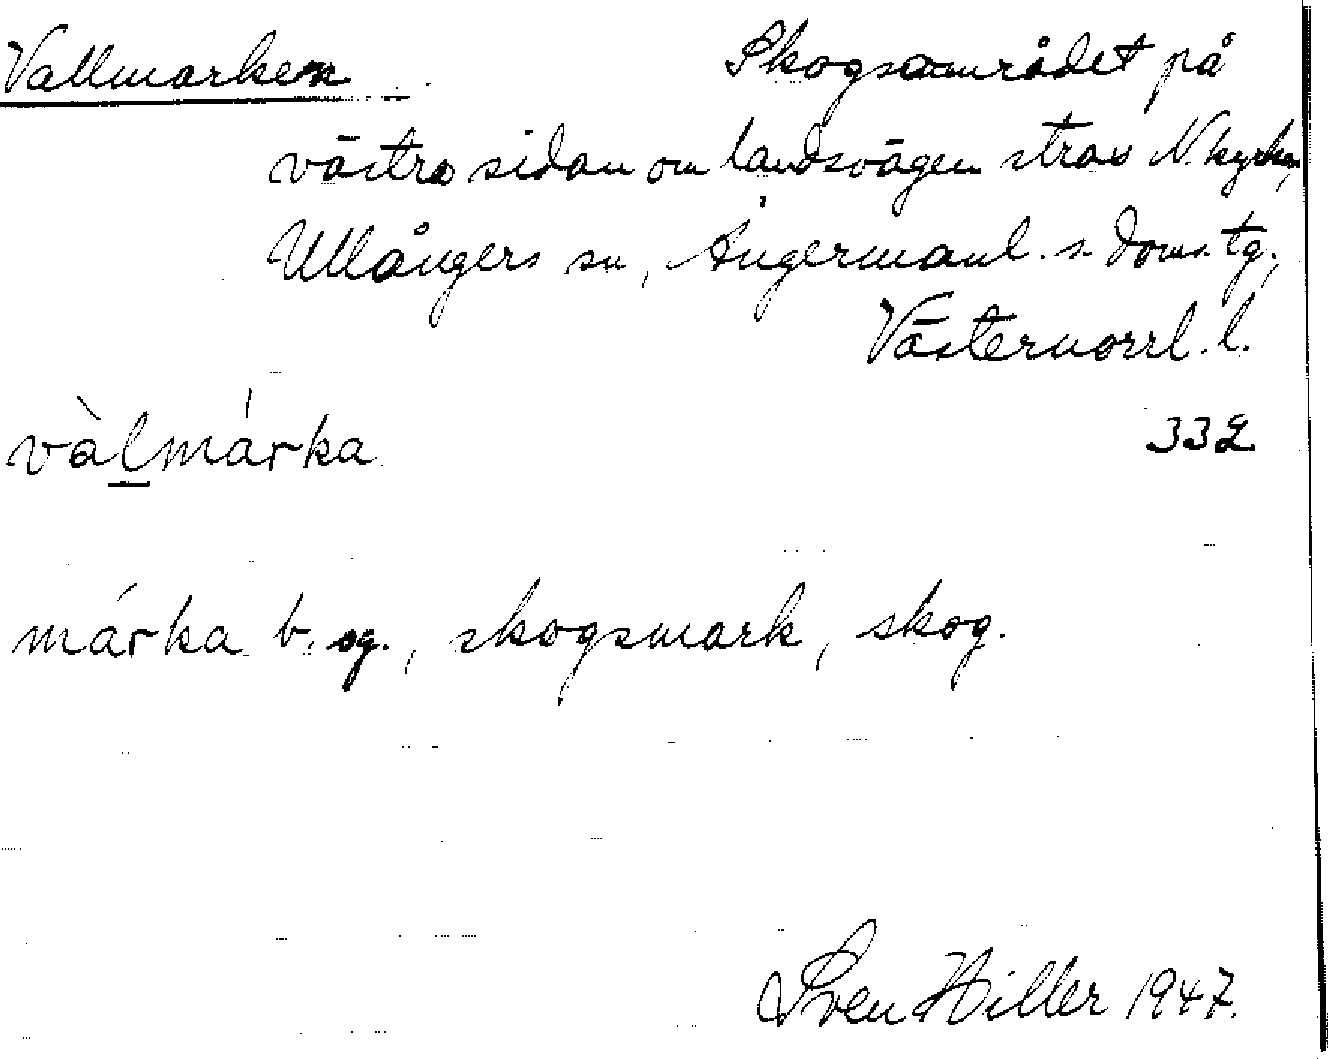 Vallmarken Skogsområdet på
västra sidan om landsvägen strax N. kyrkan,
Ullångers sn, Ångermanl. s. doms. tg.,
Västernorrl. l.
vàlmárka 332
márka b. sg., skogsmark, skog.
Sven Hiller 1947.